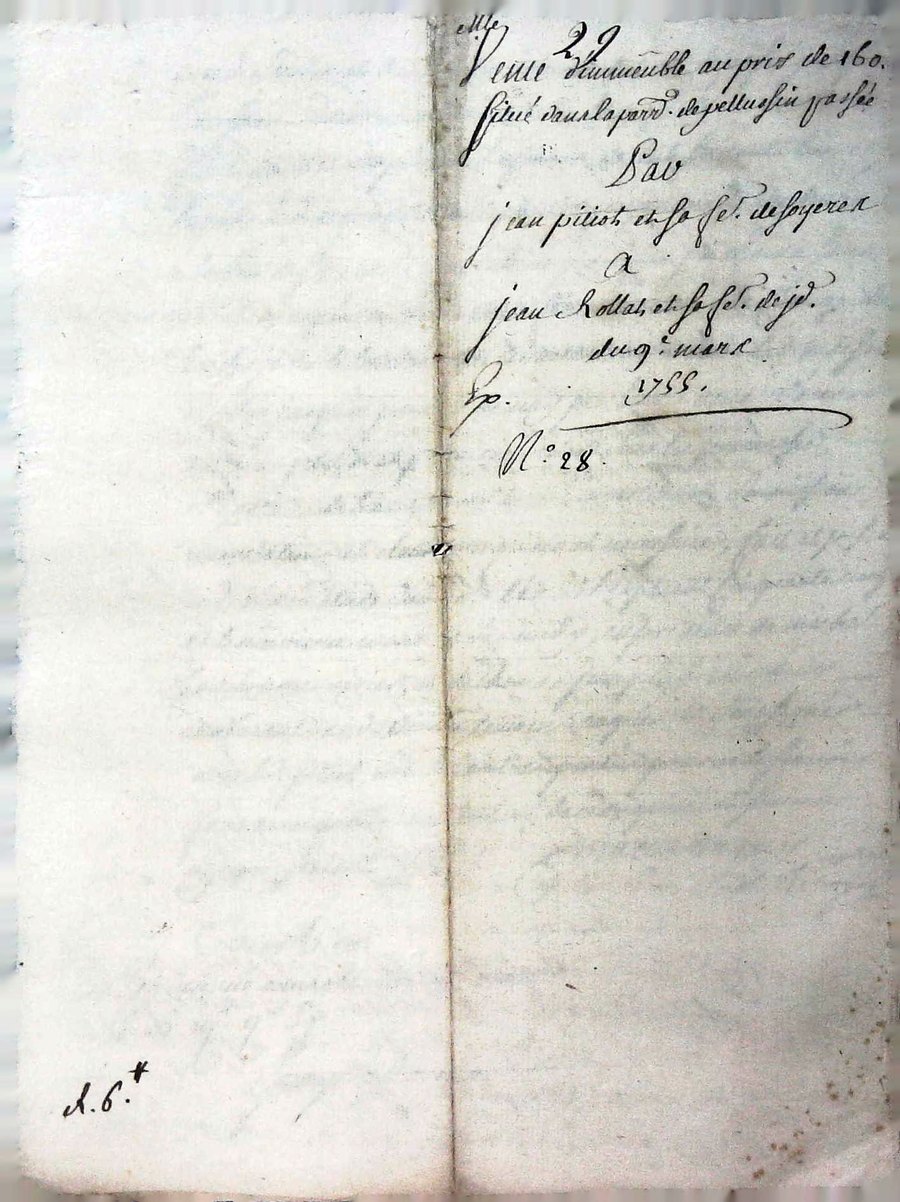 29
Vente dimmeuble au prix de 160.
situé dans la parr.e de pellussin passée
Par
jean pitiot et sa fe. de
A
jean Rollat et sa fe. de jd.
du 9.e mars
1755.
Ep.
N.o 28.
R. 6.#